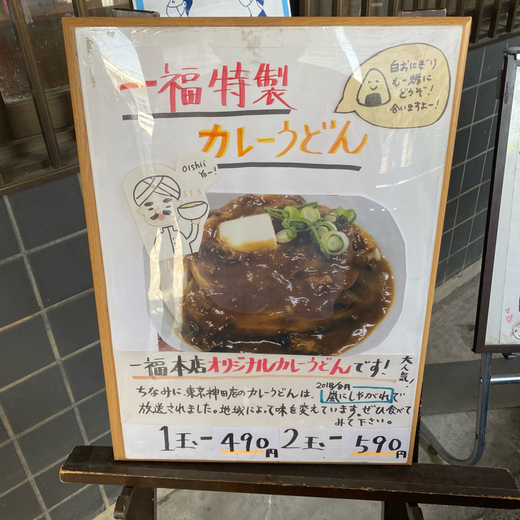 一福特製
カレーうどん
白おにぎり
も一緒に
どうぞ!
合いますよー!
OIShii
Yo~!
一福本店オリジナルカレーうどんです!
大人気!
ちなみに、東京神田店のカレーうどんは、2018/6月 嵐にしやがれで
放送されました。地域によって味を変えています。ぜひ食べ
みて下さい。
1玉-490円 2玉-590円